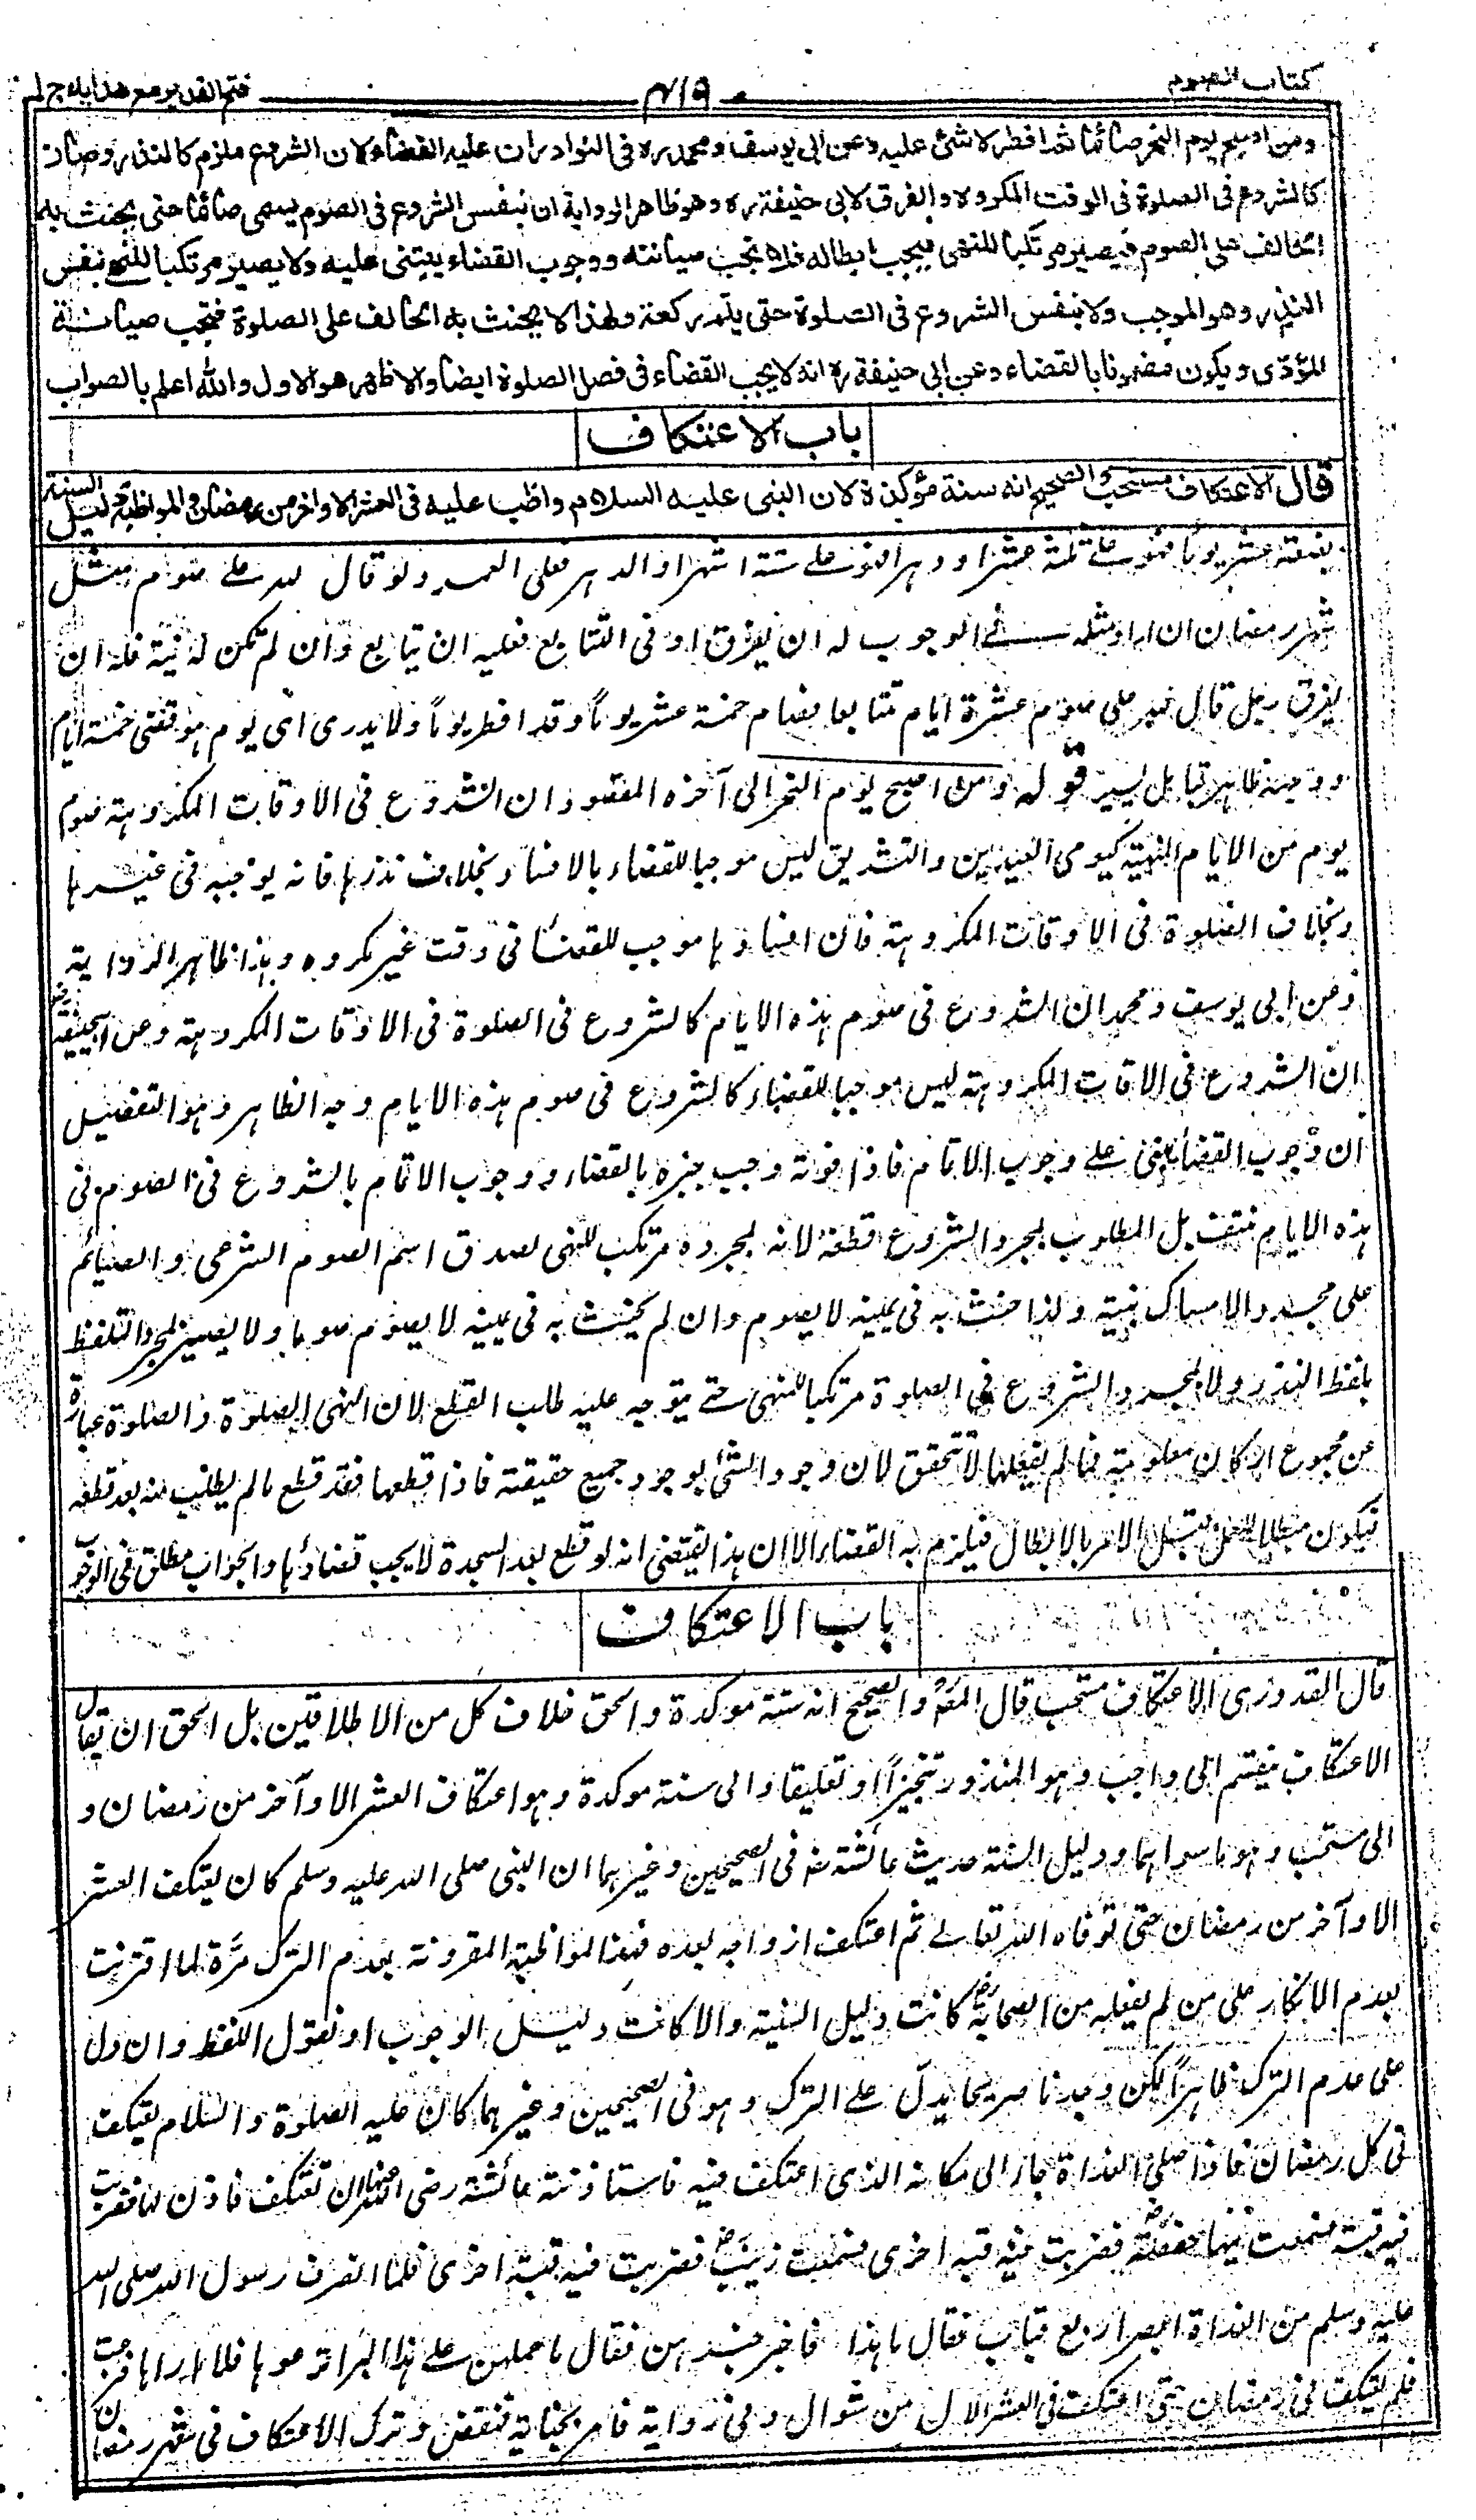 كتاب الصوم
٤١٩
فتح القدير مع هدايه ج ١
ومن اصبح يوم النحر صائما ثم افطر لا شئ عليه وعن ابى يوسف ومحمد ره فى النوادر ان عليه القضاء لان الشروع ملزم كالنذر وصار
كالشروع فى الصلوة فى الوقت المكروه والفرق لابى حنيفة ره وهو ظاهر الرواية ان بنفس الشروع فى الصوم يسمى صائما حتى يحنث به
الحالف على الصوم فيصير مرتكبا للنهى فيجب ابطاله فلا تجب صيانته ووجوب القضاء يبتنى عليه ولا يصير مرتكبا للنهى بنفس
النذر وهو الموجب ولا بنفس الشروع فى الصلوة حتى يتم ركعة ولهذا لا يحنث به الحالف على الصلوة فتجب صيانة
المؤدى ويكون مضمونا بالقضاء وعن ابى حنيفة ره انه لا يجب القضاء فى فصل الصلوة ايضا والاظهر هو الاول والله اعلم بالصواب
باب الاعتكاف
قال الاعتكاف مستحب والصحيح انه سنة مؤكدة لان النبى عليه السلام واظب عليه فى العشر الاواخر من رمضان والمواظبة دليل السنة
بضعة عشر يوما فهو على ثلثة عشر او دهرا فهو على ستة اشهر او الدهر فعلى العمر ولو قال لله على صوم مثل
شهر رمضان ان اراد مثله فى الوجوب له ان يفرق او فى التتابع فعليه ان يتابع وان لم تكن له نية فله ان
يفرق رجل قال لله على صوم عشرة ايام متتابعا فصام خمسة عشر يوما وقد افطر يوما ولا يدرى اى يوم هو قضى خمسة ايام
ووجهه ظاهر بتامل يسير قوله ومن اصبح يوم النحر الى آخره المقصود ان الشروع فى الاوقات المكروهة صوم
يوم من الايام المنهية كيومى العيدين والتشريق ليس موجبا للقضاء بالافساد بخلاف نذرها فانه يوجبه فى غيرها
وبخلاف الصلوة فى الاوقات المكروهة فان افسادها موجب للقضاء فى وقت غير مكروه وهذا ظاهر الرواية
وعن ابى يوسف ومحمد ان الشروع فى صوم هذه الايام كالشروع فى الصلوة فى الاوقات المكروهة وعن ابى حنيفة
ان الشروع فى الاوقات المكروهة ليس موجبا للقضاء كالشروع فى صوم هذه الايام وجه الظاهر وهو التفصيل
ان وجوب القضاء يبتنى على وجوب الاتمام فاذا فوته وجب جبره بالقضاء ووجوب الاتمام بالشروع فى الصوم فى
هذه الايام منتف بل المطلوب بمجرد الشروع قطعه لانه بمجرده مرتكب للنهى لصدق اسم الصوم الشرعى والصائم
على مجرد الامساك بنية ولذا حنث به فى يمينه لا يصوم وان لم يحنث به فى يمينه لا يصوم صوما ولا يصير بمجرد التلفظ
بلفظ النذر ولا بمجرد الشروع فى الصلوة مرتكبا للنهى حتى يتوجه عليه طلب القطع لان النهى الصلوة والصلوة عبارة
عن مجموع اركان معلومة فما لم يفعلها لا تتحقق لان وجود الشئ بوجود جميع حقيقته فاذا قطعها فقد قطع ما لم يطلب منه بعد قطعه
فيكون مبطلا للعمل قبل الامر بالابطال فيلزم به القضاء الا ان هذا يقتضى انه لو قطع بعد السجدة لا يجب قضاؤها والجواب مطلق فى الوجوب
باب الاعتكاف
قال القدورى الاعتكاف مستحب قال المصر والصحيح انه سنة موكدة والحق خلاف كل من الاطلاقين بل الحق ان يقال
الاعتكاف ينقسم الى واجب وهو المنذور تنجيزا او تعليقا والى سنة موكدة وهو اعتكاف العشر الاواخر من رمضان و
الى مستحب وهو ما سواهما ودليل السنة حديث عائشة رض فى الصحيحين وغيرهما ان النبى صلى الله عليه وسلم كان يعتكف العشر
الاواخر من رمضان حتى توفاه الله تعالى ثم اعتكف ازواجه بعده فهذه المواظبة المقرونة بعدم الترك مرة لما اقترنت
بعدم الانكار على من لم يفعله من الصحابة رض كانت دليل السنية والا كانت دليل الوجوب او نقول اللفظ وان دل
على عدم الترك ظاهرا لكن وجدنا صريحا يدل على الترك وهو فى الصحيحين وغيرهما كان عليه الصلوة والسلام يعتكف
فى كل رمضان فاذا صلى الغداة جاء الى مكانه الذى اعتكف فيه فاستاذنته عائشة رضى الله عنها ان تعتكف فاذن لها فضربت
فيه قبة فسمعت بها حفصة رض فضربت فيه قبة اخرى فسمعت زينب رض فضربت فيه قبة اخرى فلما انصرف رسول الله صلى الله
عليه وسلم من الغداة ابصر اربع قباب فقال ما هذا فاخبر خبرهن فقال ما حملهن على هذا البر انزعوها فلا اراها فنزعت
فلم يعتكف فى رمضان حتى اعتكف فى العشر الاول من شوال وفى رواية فامر بخبائه فقوض وترك الاعتكاف فى شهر رمضان